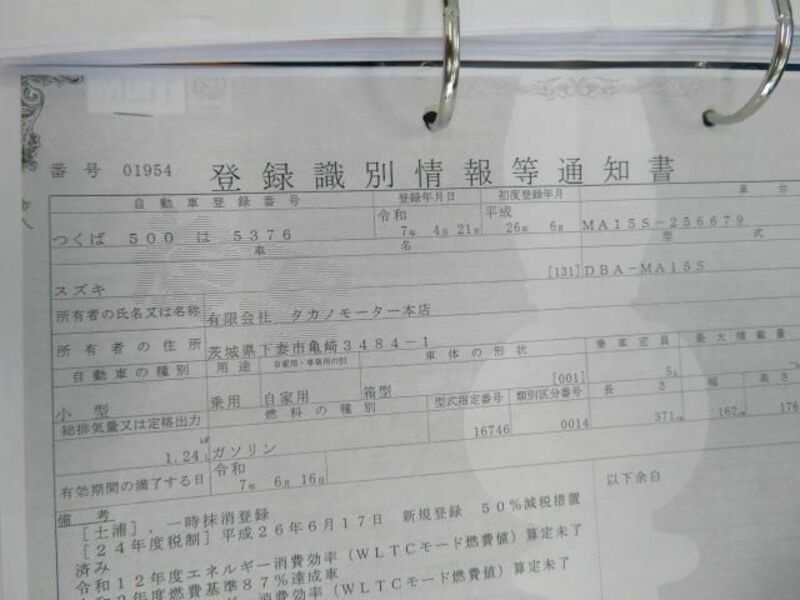 番号 01954 登録識別情報等通知書
自動車登録番号 登録年月日 初度登録年月 車台
つくば 500 は 5376 令和 7年 4月 21日 平成 26年 6月 MA15S-256679
車名 型式
スズキ [131] DBA-MA15S
所有者の氏名又は名称 有限会社 タカノモーター本店
所有者の住所 茨城県下妻市亀崎3484-1
自動車の種別 用途 自家用・事業用の別 車体の形状 乗車定員 最大積載量
小型 乗用 自家用 箱型 [001] 5人
総排気量又は定格出力 燃料の種別 型式指定番号 類別区分番号 長さ 幅 高さ
1.24 ガソリン 16746 0014 371 162 176
有効期間の満了する日 令和 7年 6月 16日
備考 以下余白
[土浦],一時抹消登録
[24年度税制]平成26年6月17日 新規登録 50%減税措置
済み
令和12年度エネルギー消費効率(WLTCモード燃費値)算定未了
年度燃費基準87%達成車
消費効率(WLTCモード燃費値)算定未了